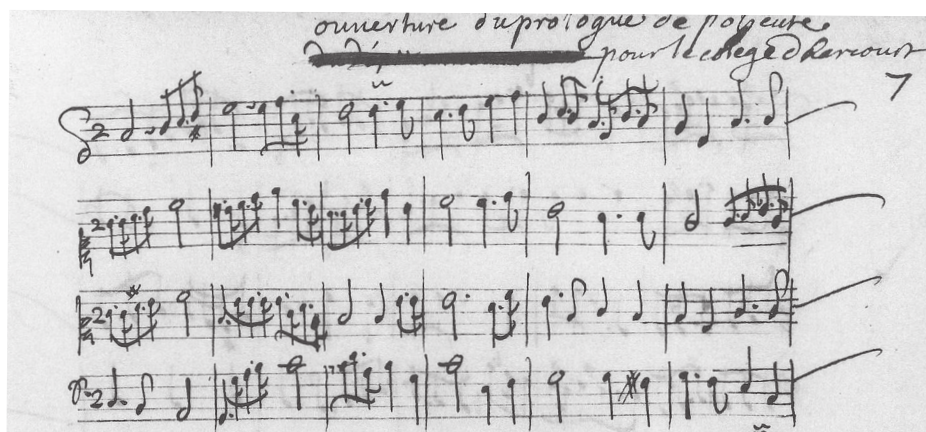 ouverture du prologue de polyeucte
pour le colege d harcourt
7